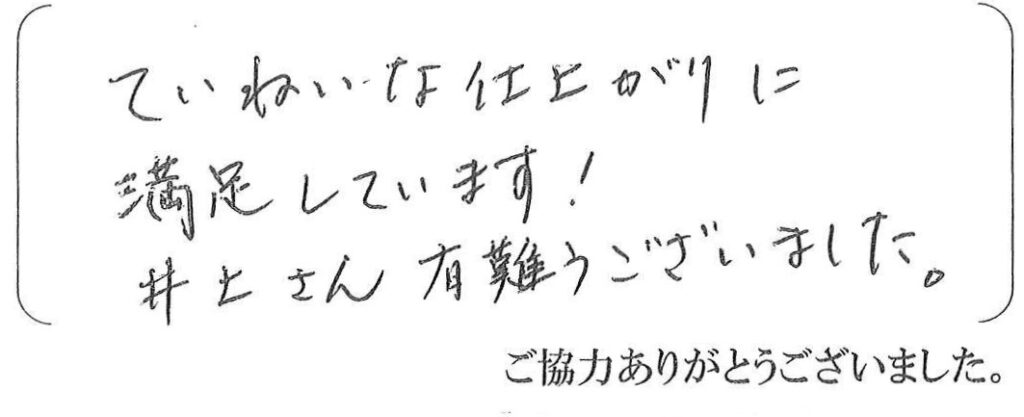 ていねいな仕上がりに
満足しています！
井上さん有難うございました。
ご協力ありがとうございました。